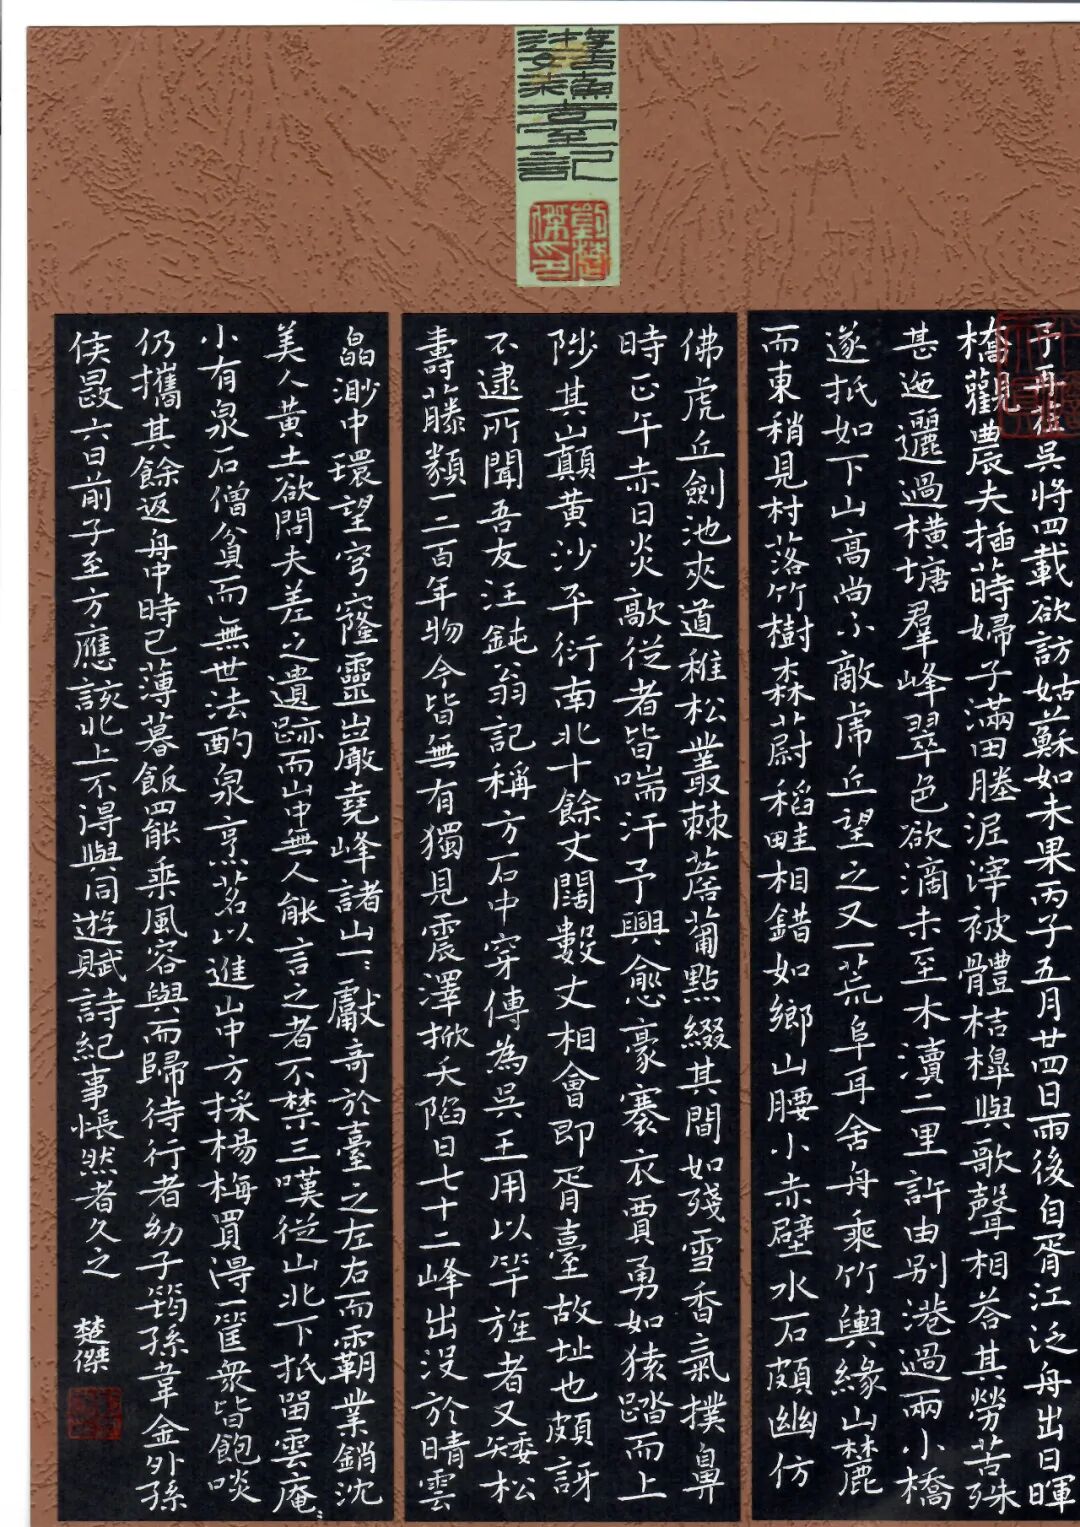 遊姑蘇臺記
予再莅吳將四載欲訪姑蘇如未果丙子五月廿四日雨後自胥江泛舟出日暉
橋觀農夫插蒔婦子滿田塍泥滓被體桔槔與歌聲相荅其勞苦殊
甚迤邐過橫塘羣峰翠色欲滴未至木瀆二里許由別港過兩小橋
遂抵如下山高尚不敵虎丘望之又一荒阜耳舍舟乘竹輿緣山麓
而東稍見村落竹樹森蔚稻畦相錯如鄉山腰小赤壁水石頗幽仿
佛虎丘劍池夾道稚松叢棘薝蔔點綴其間如殘雪香氣撲鼻
時正午赤日炎歊從者皆喘汗予興愈豪褰衣賈勇如猿踏而上
陟其山巔黃沙平衍南北十餘丈闊數丈相會即胥臺故址也頗訝
不逮所聞吾友汪鈍翁記稱方石中穿傳為吳王用以竿旌者又矮松
壽藤類一二百年物今皆無有獨見震澤掀天陷日七十二峰出沒於晴雲
皛渺中環望穹窿靈岩嚴堯峰諸山二獻奇於臺之左右而霸業銷沈
美人黃土欲問夫差之遺跡而山中無人能言之者不禁三嘆從山北下抵畱雲庵二
小有泉石僧貧而無世法酌泉烹茗以進山中方採楊梅買得一筐眾皆飽啖
仍攜其餘返舟中時已薄暮飯罷乘風容與而歸待行者幼子筠孫韋金外孫
侯晸六日前子至方應該北上不得與同遊賦詩紀事悵然者久之
楚傑